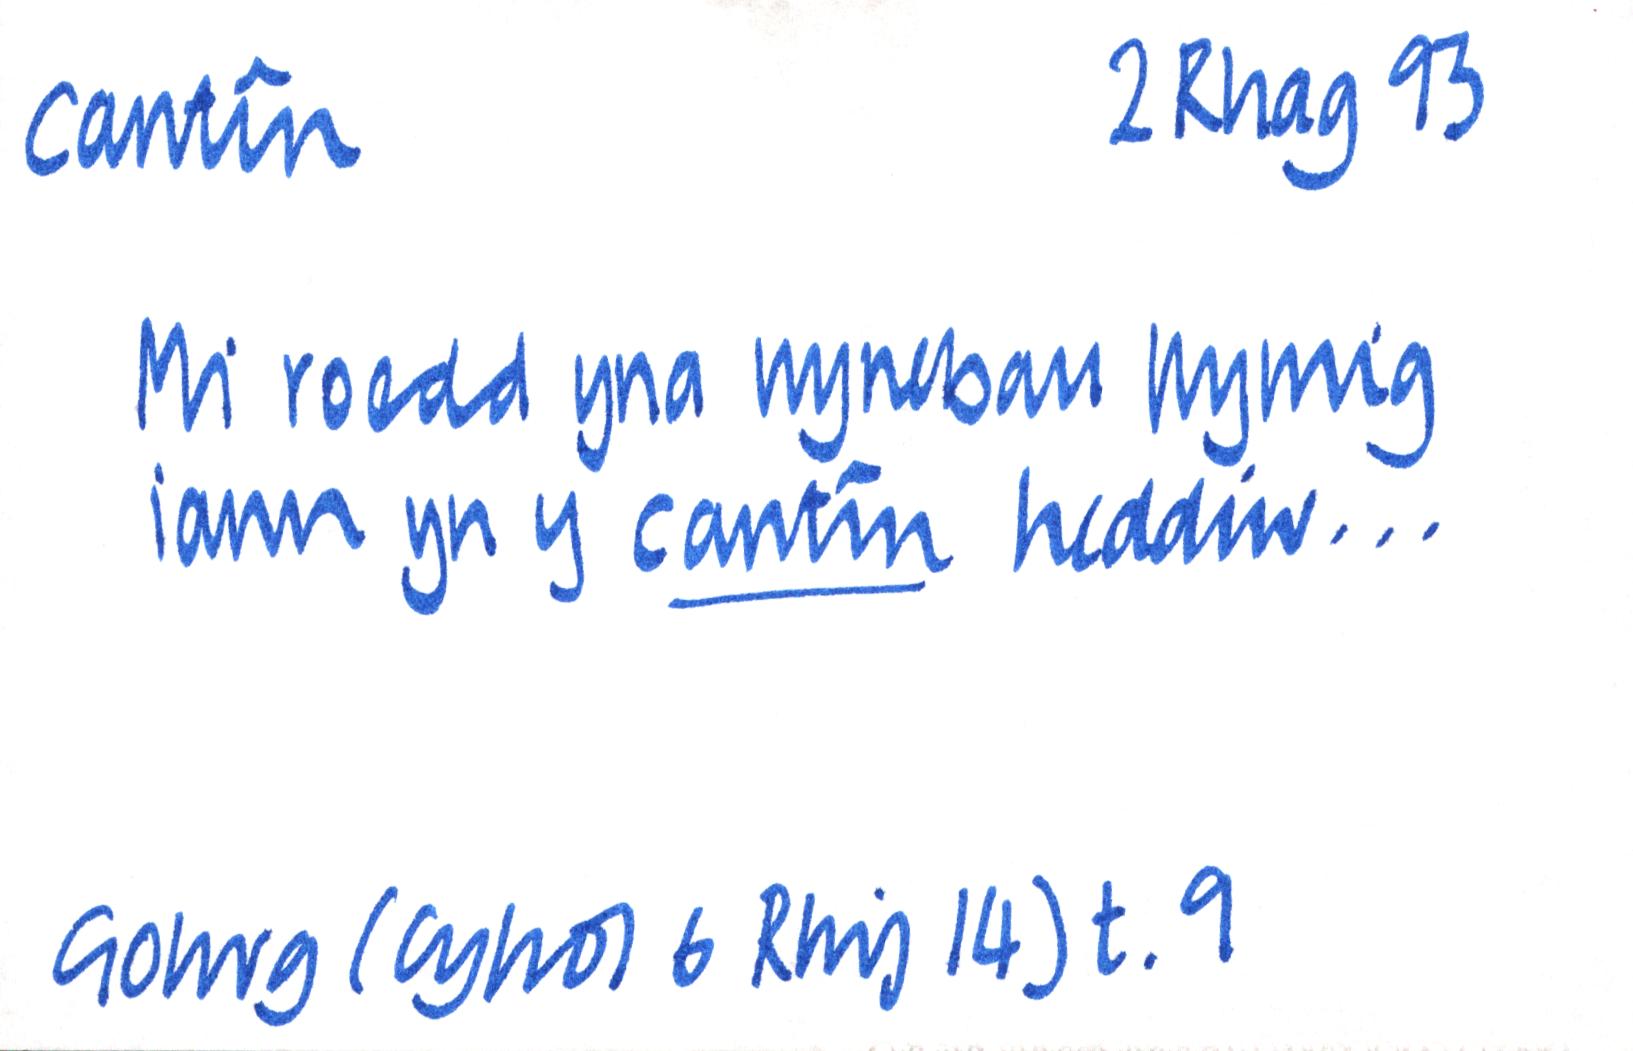 cantîn 2 Rhag 93
Mi roedd yna wynebau llymig
iawn yn y cantîn heddiw...
Golwg (Cyfrol 6 Rhif 14) t. 9